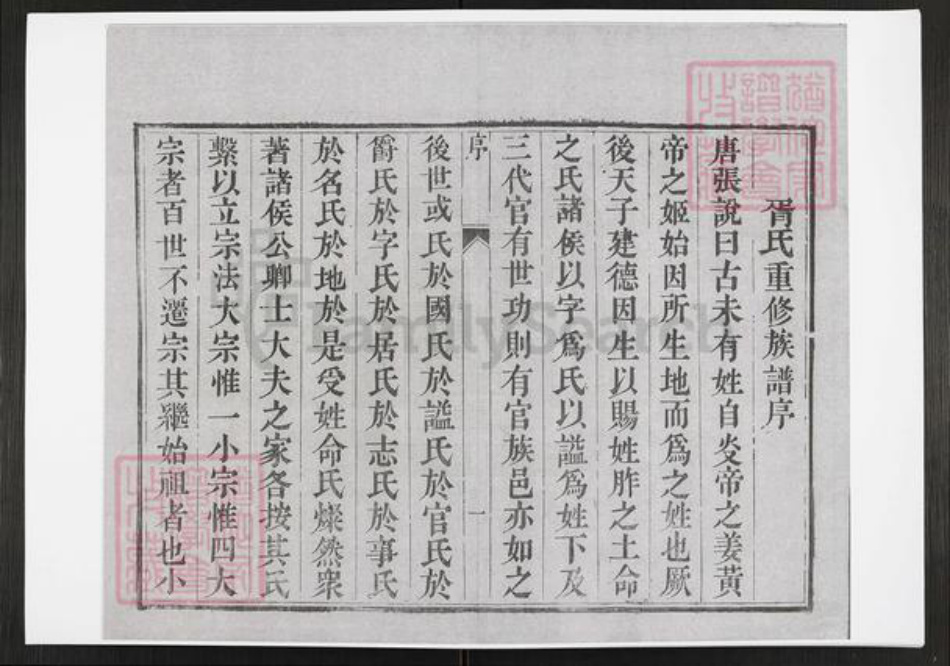 胥氏重修族譜序
唐張說曰古未有姓自炎帝之姜黃
帝之姬始因所生地而爲之姓也厥
後天子建德因生以賜姓胙之土命
之氏諸侯以字爲氏以謚爲姓下及
三代官有世功則有官族邑亦如之
序
一
後世或氏於國氏於謚氏於官氏於
爵氏於字氏於居氏於志氏於事氏
於名氏於地於是受姓命氏燦然衆
著諸侯公卿士大夫之家各按其氏
繫以立宗法大宗惟一小宗惟四大
宗者百世不遷宗其繼始祖者也小
FamilySearch